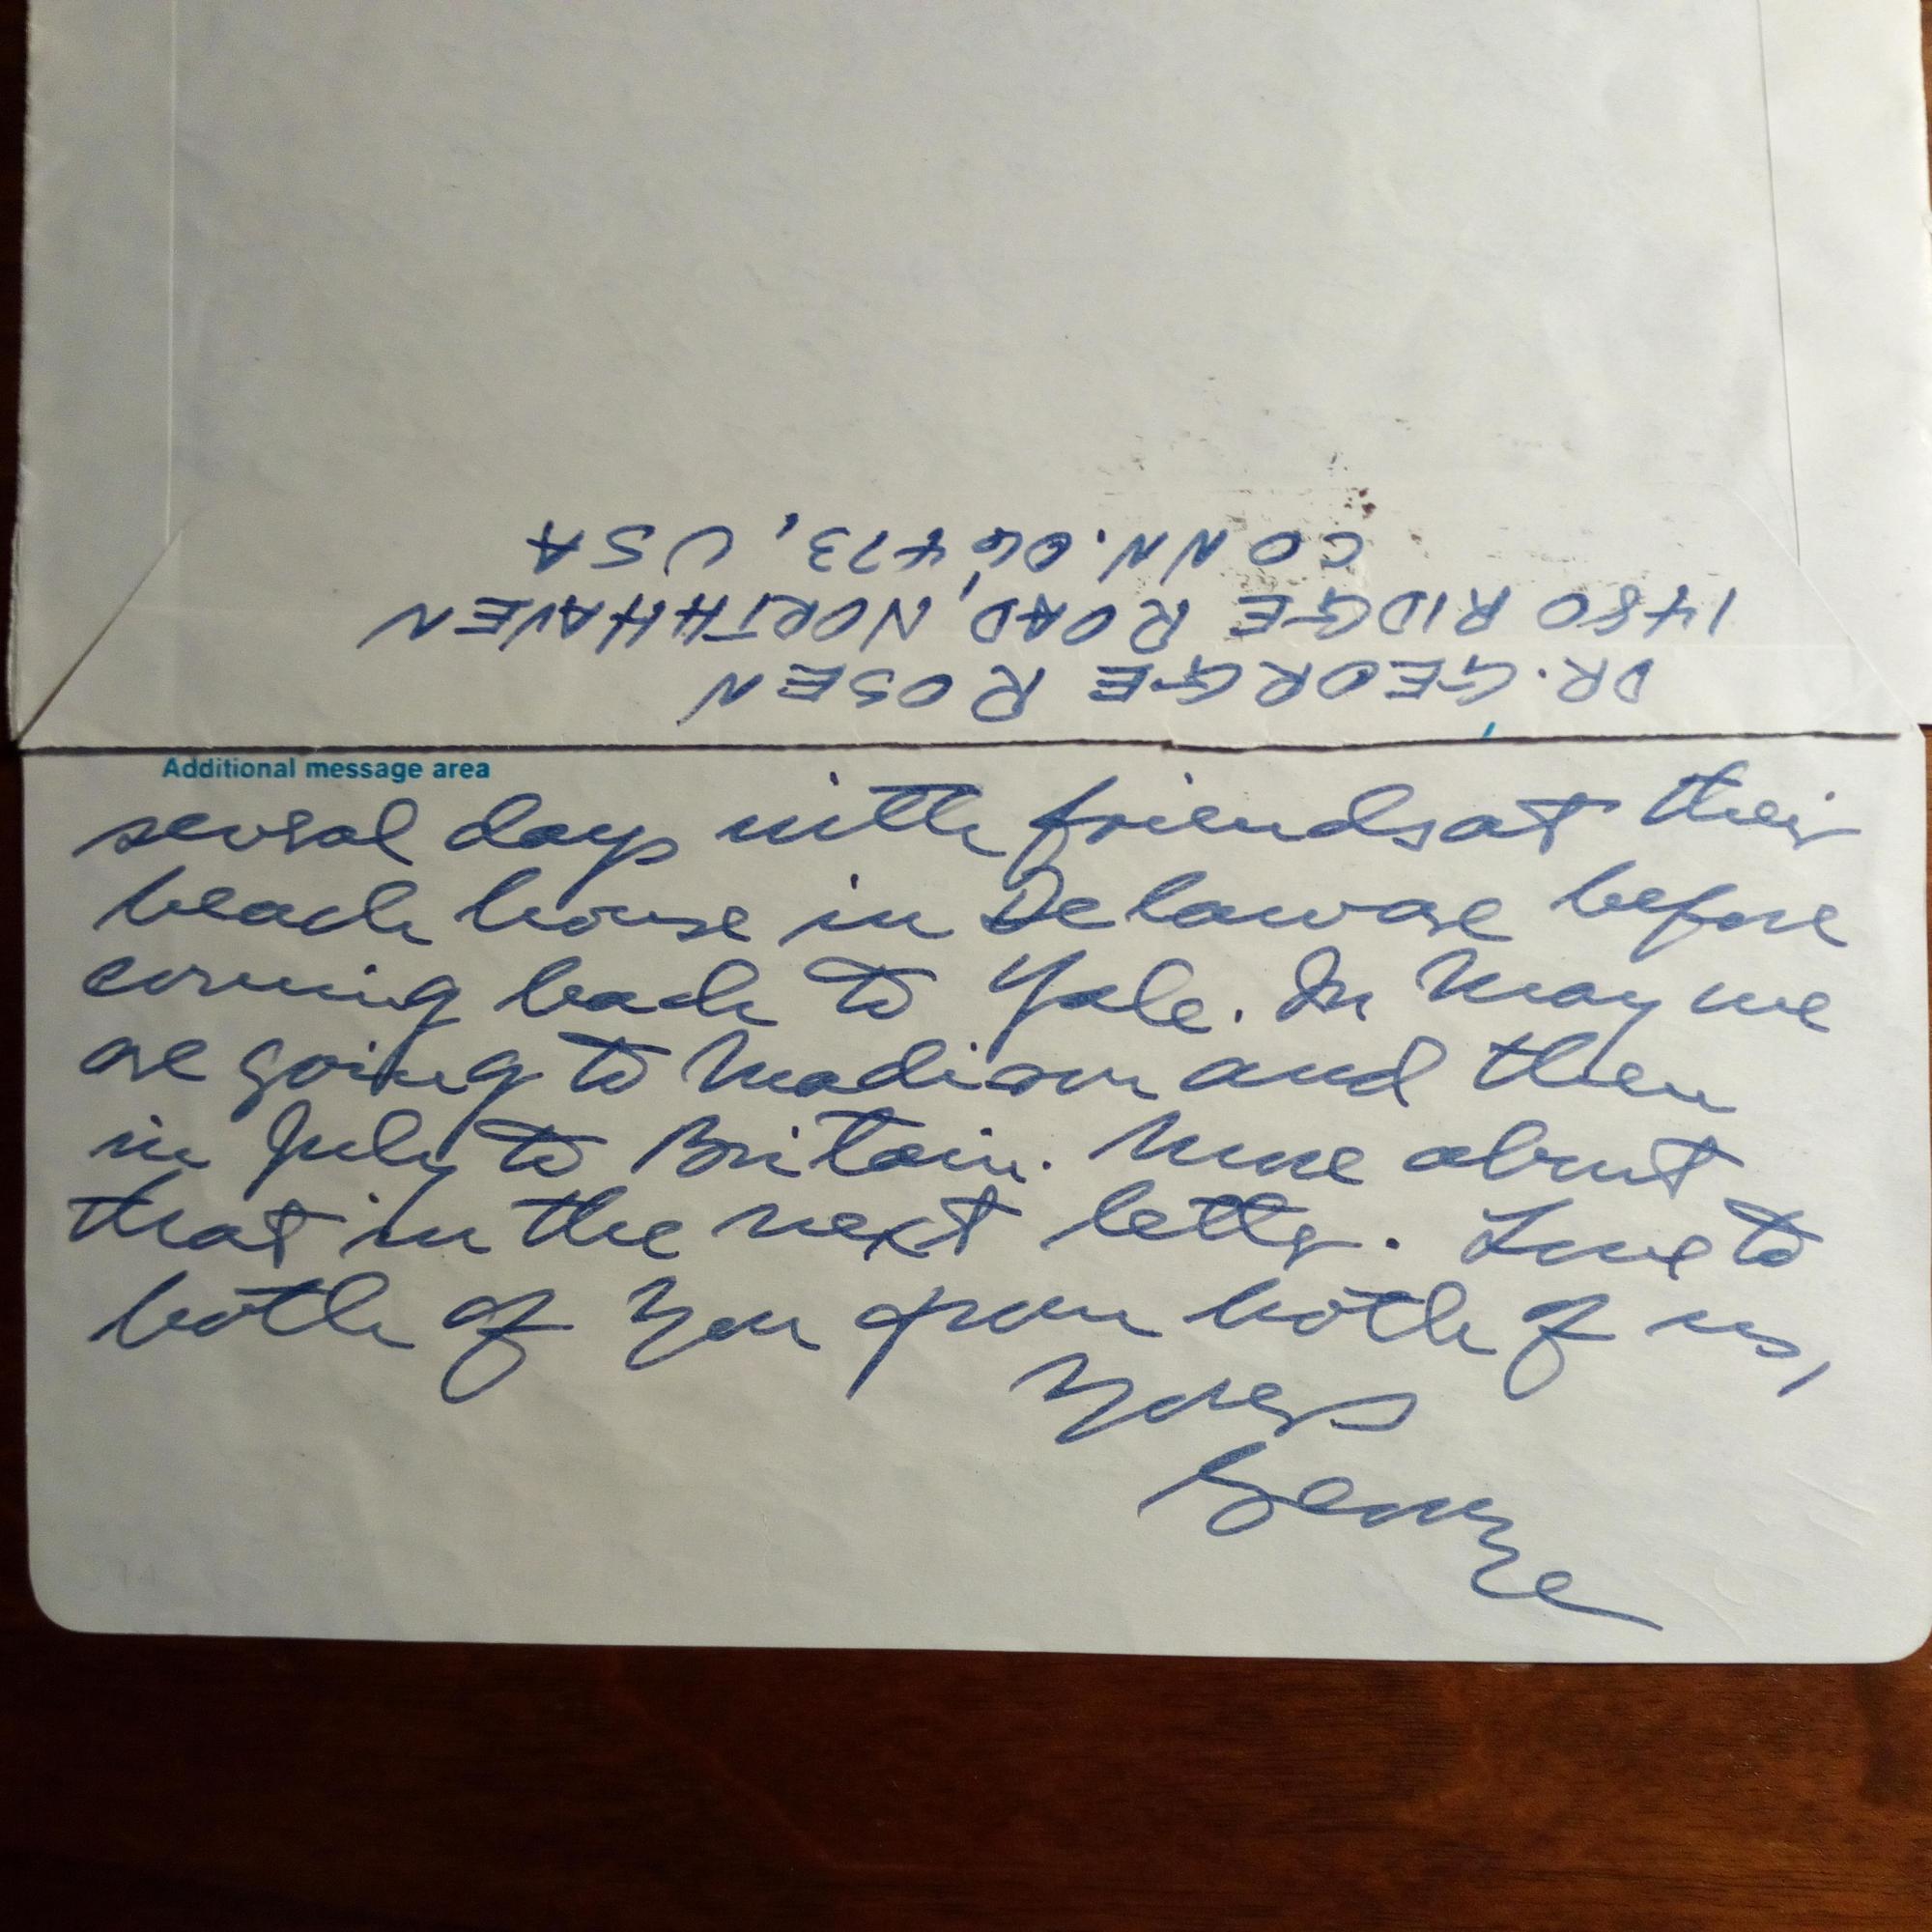 DR. GEORGE ROSEN
1480 RIDGE ROAD, NORTH HAVEN
CONN. 06473, USA
Additional message area
several days with friends at their
beach house in Delaware before
coming back to Yale. In May we
are going to Madison and then
in July to Britain. More about
that in the next letter. Love to
both of you from both of us,
Yours
George